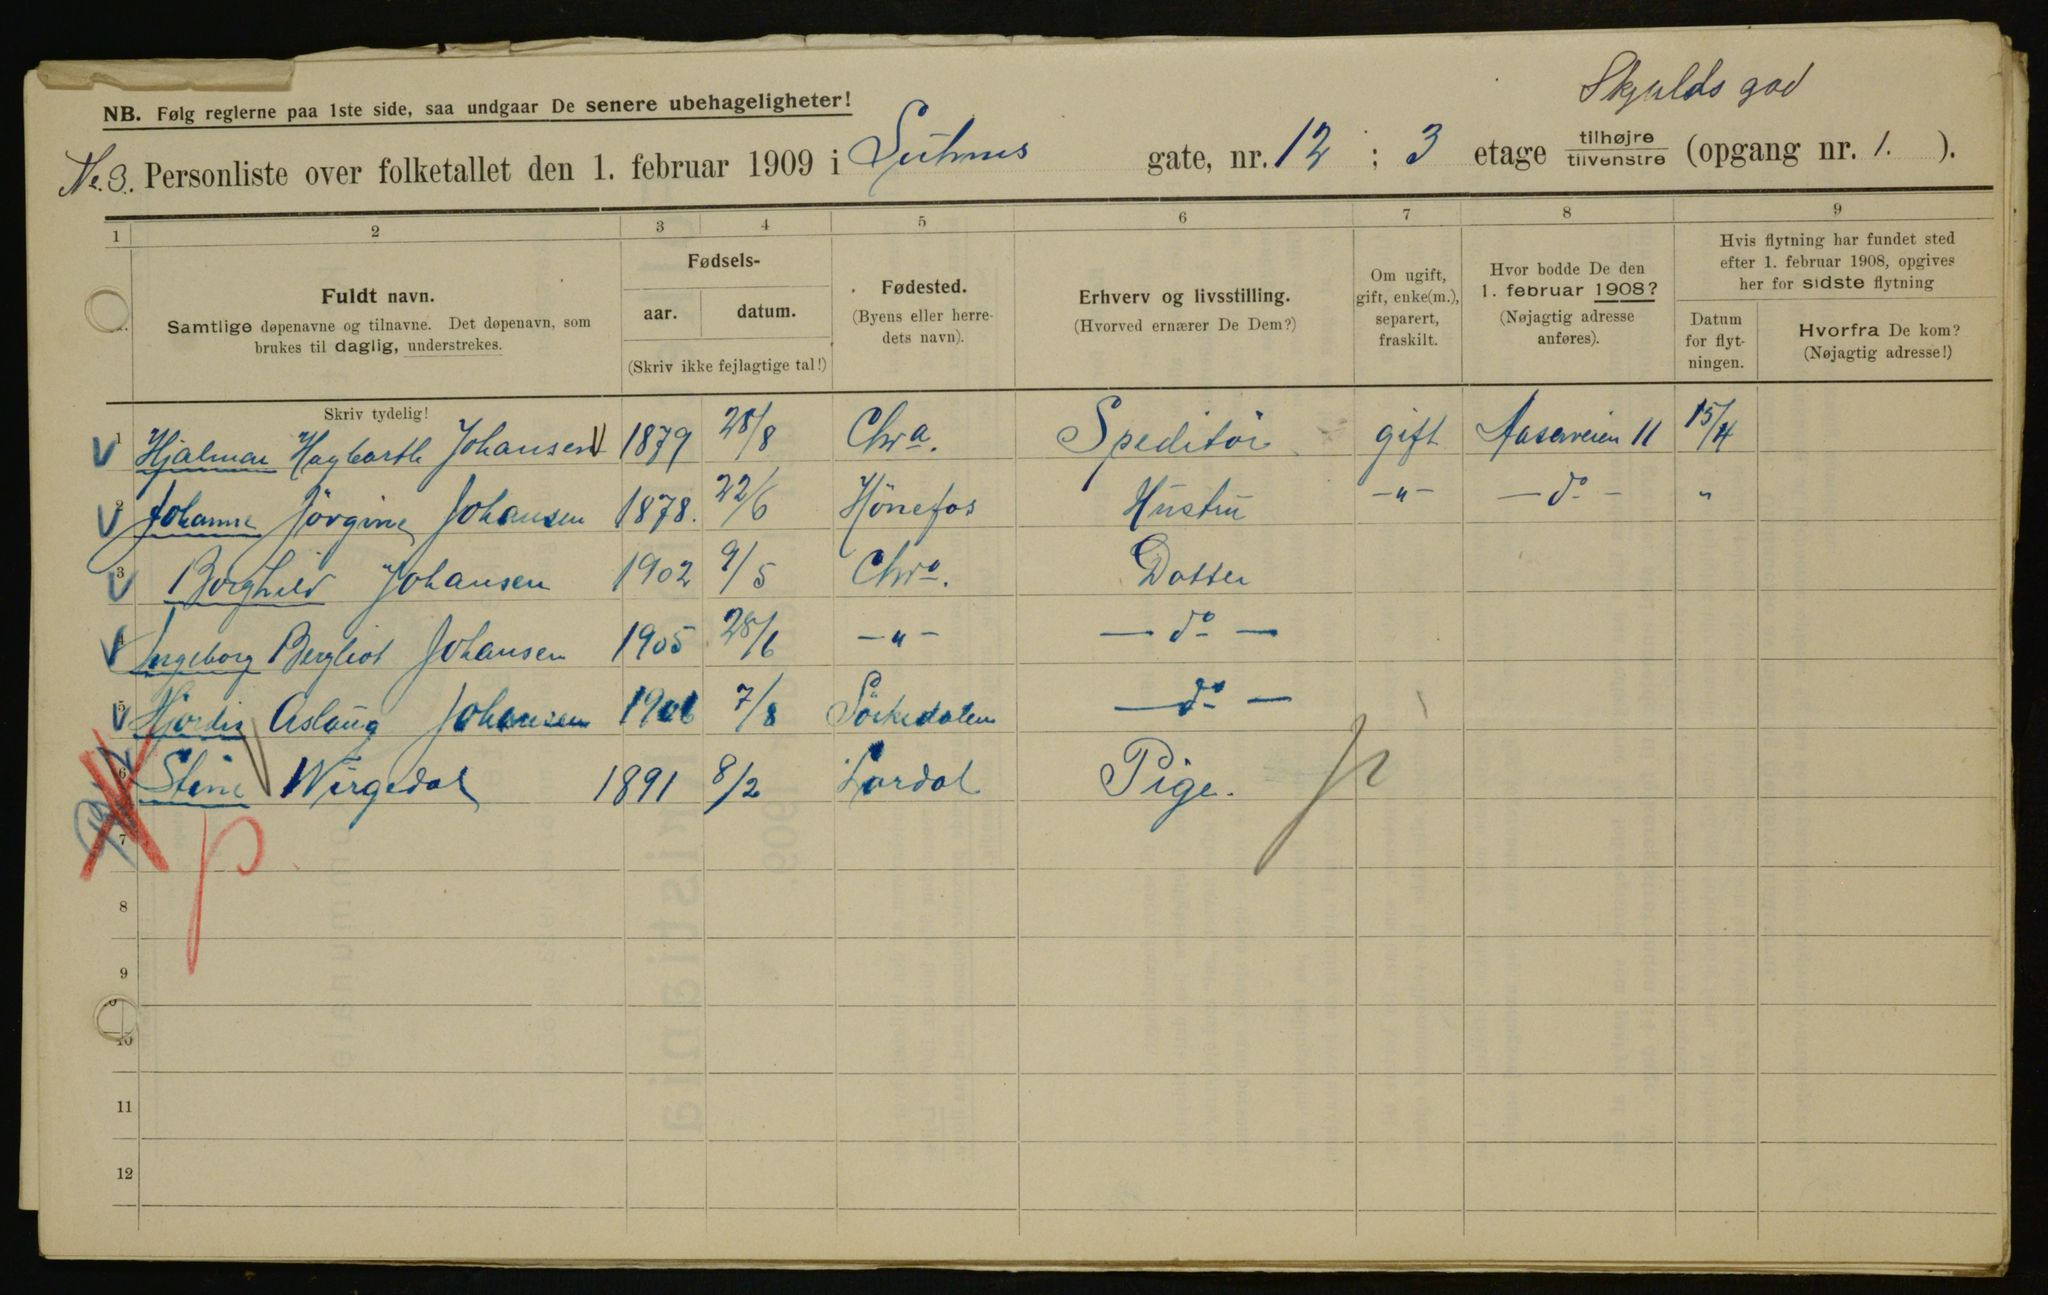 Skjulds gad
NB. Følg reglerne paa 1ste side, saa undgaar De senere ubehageligheter!
No. 3. Personliste over folketallet den 1. februar 1909 i Suhms gate, nr. 12 ; 3 etage tilhøjre tilvenstre (opgang nr. 1. ).
1 2 3 4 5 6 7 8 9
Fuldt navn.
Samtlige døpenavne og tilnavne. Det døpenavn, som
brukes til daglig, understrekes.
Fødsels-
aar. datum.
(Skriv ikke fejlagtige tal!)
Fødested.
(Byens eller herre-
dets navn).
Erhverv og livsstilling.
(Hvorved ernærer De Dem?)
Om ugift,
gift, enke(m.),
separert,
fraskilt.
Hvor bodde De den
1. februar 1908?
(Nøjagtig adresse
anføres).
Hvis flytning har fundet sted
efter 1. februar 1908, opgives
her for sidste flytning
Datum
for flyt-
ningen.
Hvorfra De kom?
(Nøjagtig adresse!)
Skriv tydelig!
1 Hjalmar Hagbarth Johansen 1879 28/8 Chr a. Speditör gift Aaserveien 11 15/4
2 Johanne Jörgine Johansen 1878. 22/6 Hönefos Hustru —"— — do — "
3 Borghild Johansen 1902 9/5 Chr a. Datter
4 Ingeborg Bergliot Johansen 1905 28/6 —"— — do —
5 Hjordis Aslaug Johansen 1906 7/8 Sörkedalen — do —
6 Stine Wirgedal 1891 8/2 Lardal Pige.
7
8
9
10
11
12